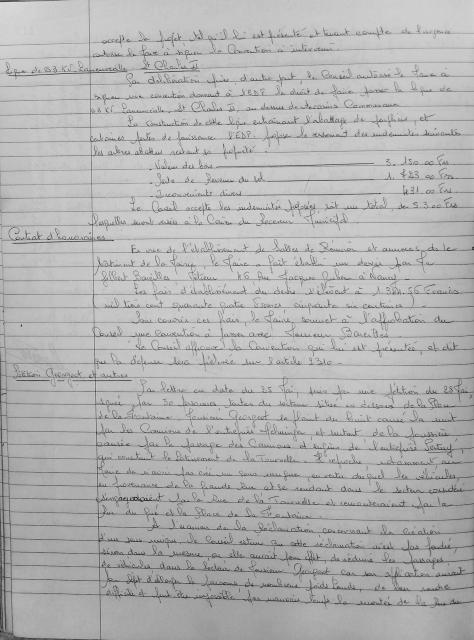 accepte le projet tel qu'il lui est présenté et tenant compte de l'urgence
autorise le Maire à signer la Convention à intervenir.
Ligne de 63 KV Laneuveville St Charles II
Par délibération prise d'autre part, le Conseil autorise le Maire à
signer une convention donnant à l'EDF le droit de faire passer la ligne de
63 KV Laneuveville St Charles II, au dessus de terrains Communaux
La construction de cette ligne entraînant l'abattage de peupliers, et
certaines pertes de jouissance l'EDF propose le versement des indemnités suivantes
les arbres abattus restant sa propriété
. Valeur des bois 3.150.00 Frs
. Perte de Revenu du sol 1.723.00 Frs
. Inconvénients divers 431.00 Frs
Le Conseil accepte les indemnités proposées, soit un total de 5.300 Frs
lesquelles seront versées à la Caisse du Receveur Municipal
Contrat d'honoraires
En vue de l'établissement de salles de Réunion et annexes, de le
bâtiment de la Mairie, le Maire a fait établir un devis par M.
Gilbert 46 Rue Jacques à Nancy.
Les frais d'établissement du devis s'élèvent à 1344.56 Francs
mil trois cent quarante quatre francs cinquante six centimes.
Pour couvrir ces frais, le Maire soumet à l'approbation du
Conseil une Convention à passer avec Monsieur
Le Conseil approuve la Convention qui lui est présentée, et dit
que la dépense sera prélevée sur l'article 2310.
Pétition Georgeot et autres
Par lettre en date du 25 Mai, puis par une pétition du 28 Mai,
signée par 30 personnes toutes du secteur situé au dessus de la Place
de la Fontaine Monsieur Georgeot se plaint du bruit causé la nuit
par les Camions de l'entreprise et surtout de la poussière
causée par le passage des Camions d'argile de l'entreprise
qui construit le lotissement de la Tournelle. Il reproche notamment au
Maire de n'avoir pas créé un sens unique, en vertu duquel les véhicules,
en provenance de la Grande Rue et se rendant dans le secteur considéré
s'engageraient par la Rue de la Tournelle et remonteraient par la
Rue du Gué et la Place de la Fontaine
A l'examen de la réclamation concernant la création
d'un sens unique le Conseil estime que cette réclamation n'est pas fondée,
sinon dans la mesure où elle aurait pour effet, de réduire les passages
de véhicules dans le secteur de Monsieur Georgeot car son application aurait
pour effet d'élargir le parcours de nombreux poids lourds, de leur rendre
difficile et peut être impossible par mauvais temps la montée de la Rue du